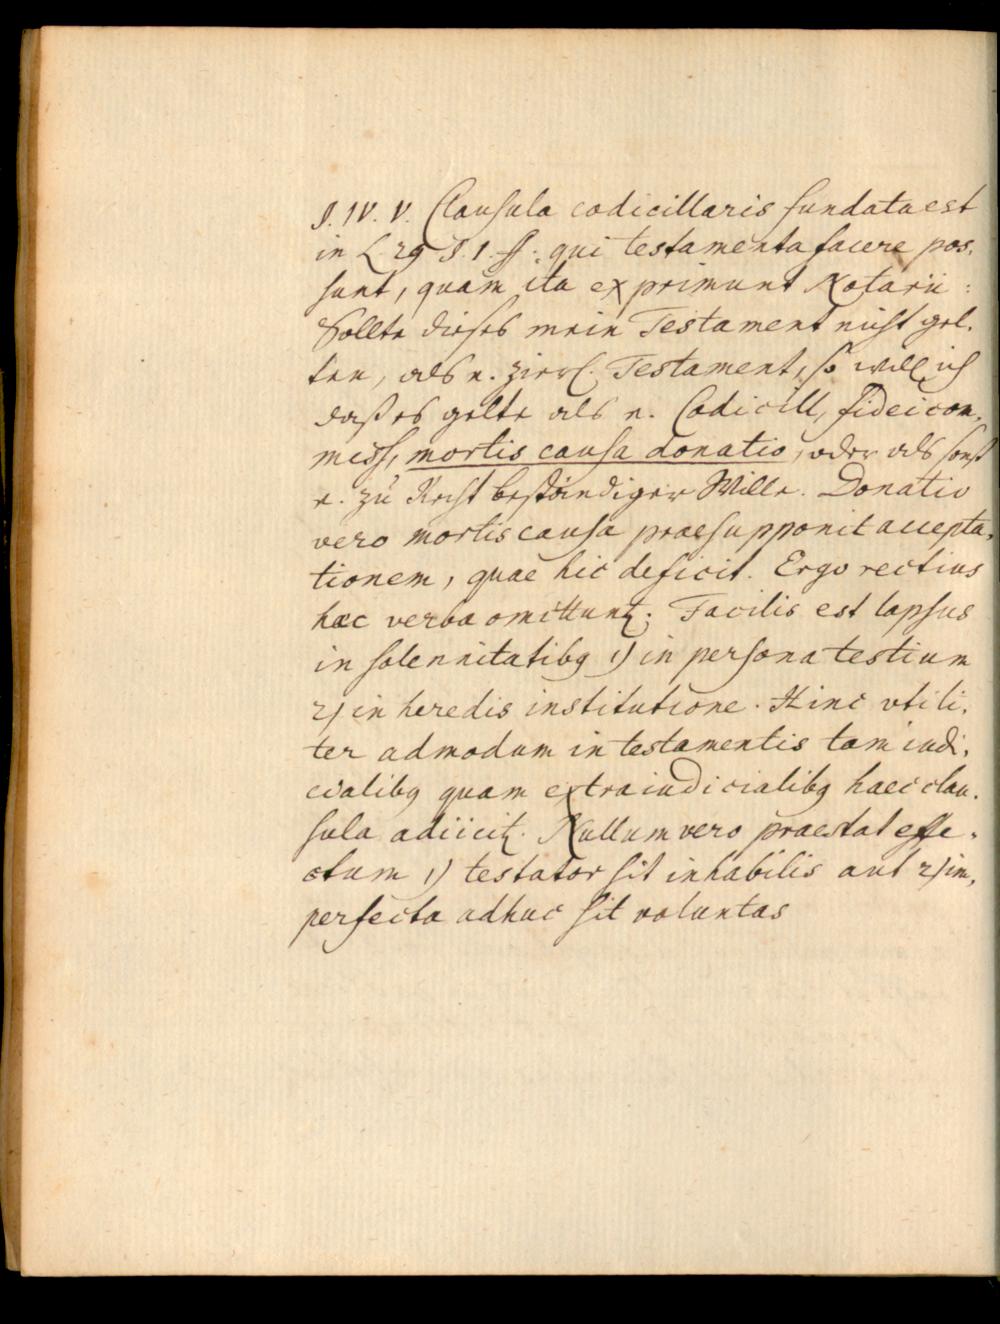 §. IV. V. Clausula codicillaris fundata est
in L. 29 §. 1. ff. qui testamenta facere pos-
sunt, quam ita exprimunt Notarii:
Sollte dieses mein Testament nicht gel-
ten, als e. zierl. Testament, so will ich
daß es gelte als e. Codicill, fideicom-
miss, mortis causa donatio, oder als sonst
e. zu Recht beständiger Wille. Donatio
vero mortis causa praesupponit accepta-
tionem, quae hic deficit. Ergo rectius
haec verba omittuntꝛ. Facilis est lapsus
in solennitatibꝯ 1) in persona testium
2) in heredis institutione. Hinc vtili-
ter admodum in testamentis tam iudi-
cialibꝯ quam extraiudicialibꝯ haec clau-
sula adiicitꝛ. Nullum vero praestat effe-
ctum 1) testator sit inhabilis aut 2) im-
perfecta adhuc sit voluntas